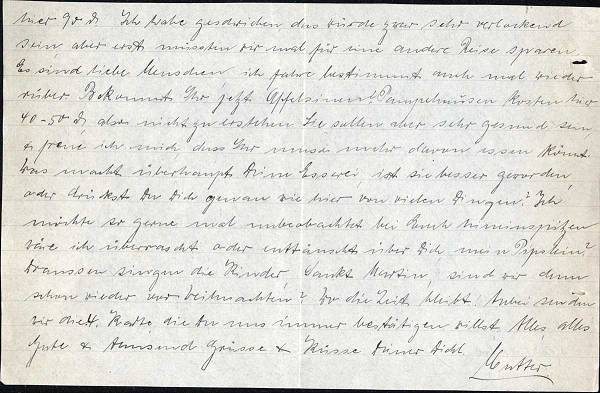 hier 90 d Ich habe geschrieben das würde zwar sehr verlockend
sein aber erst müssten wir mal für eine andere Reise sparen
Es sind liebe Menschen, ich fahre bestimmt auch mal wieder
rüber Bekommt Ihr jetzt Apfelsinen? Pampelmusen kosten hier
40-50 d also nicht zu erstehen Sie sollen aber sehr gesund sein
& freue ich mich dass Ihr mehr davon essen könnt.
Was macht überhaupt Deine Esserei, ist sie besser geworden,
oder drückst Du Dich genau wie hier von vielen Dingen? Ich
möchte so gerne mal unbeobachtet bei Euch
wäre ich überrascht oder enttäuscht über Dich mein
Draussen singen die Kinder, Sankt Martin, sind wir denn
schon wieder vor Weihnachten? Wo die Zeit bleibt. Anbei senden
wir die Karte, die Du uns immer bestätigen willst Alles, alles
Gute & tausend Grüsse & Küsse Deiner Dich
Mutter